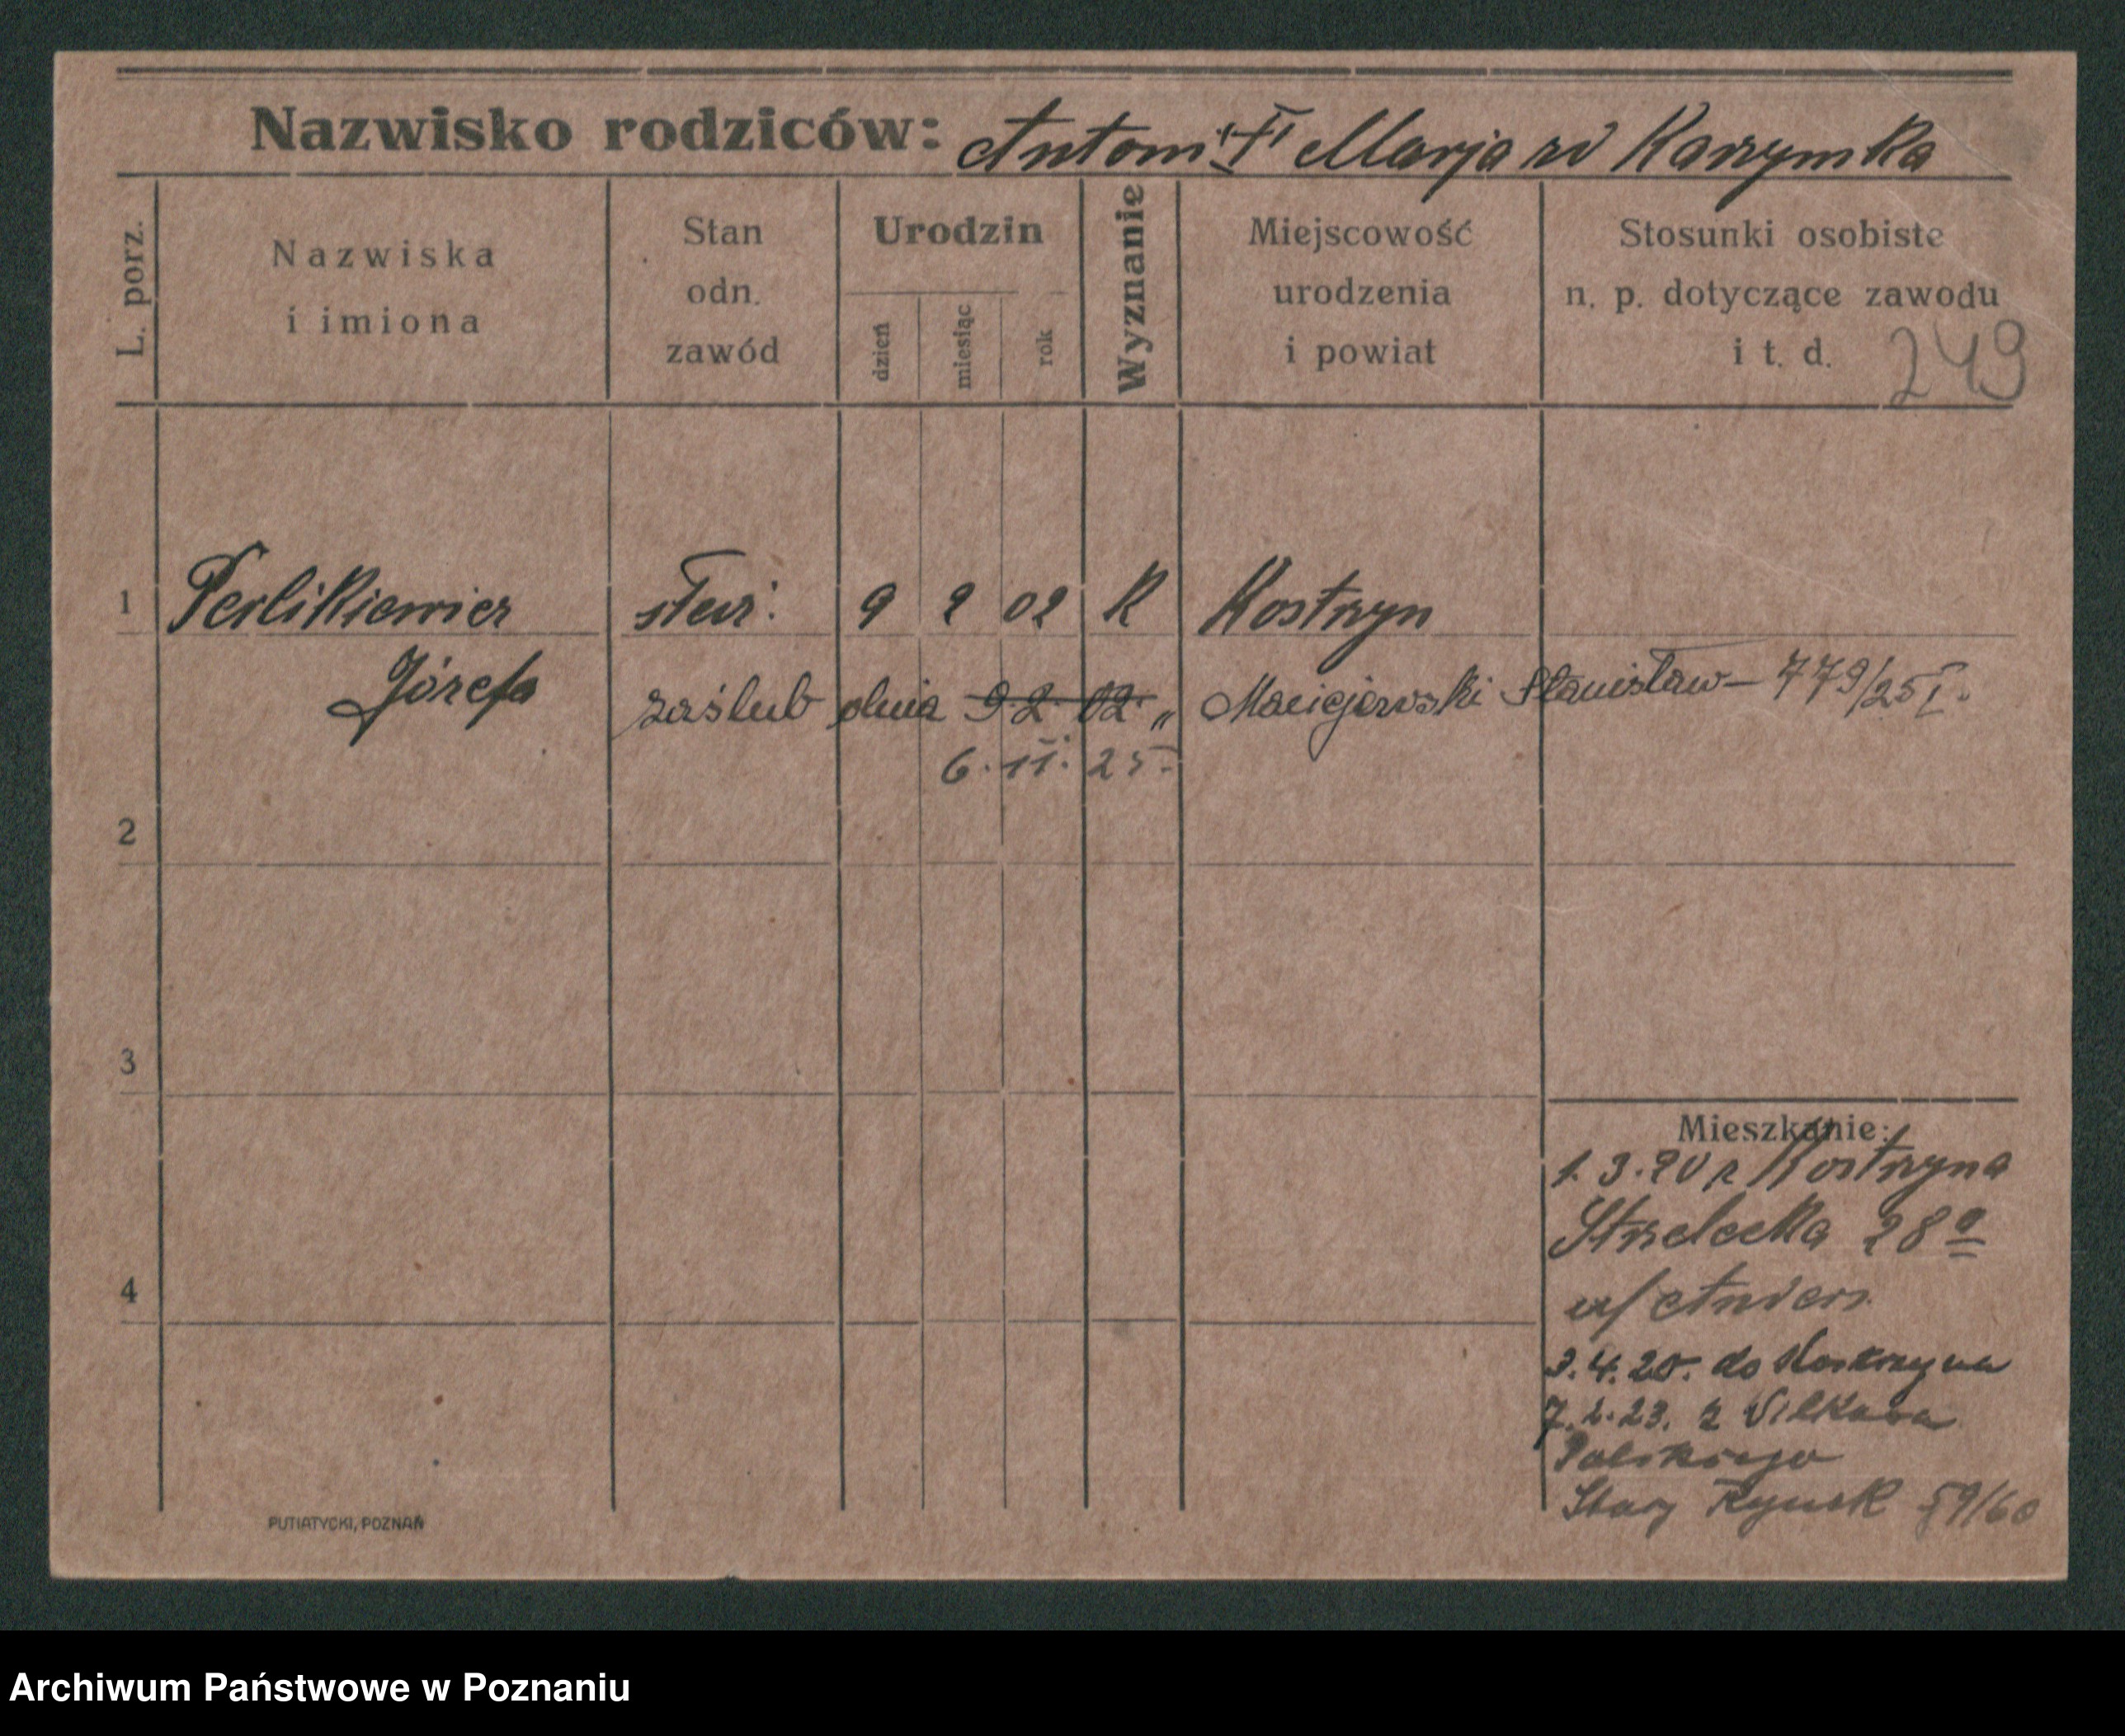 Nazwisko rodziców: Antoni i Marja zd Karzymka
L. porz.
Nazwiska
i imiona
Stan
odn.
zawód
Urodzin
dzień
miesiąc
rok
Wyznanie
Miejscowość
urodzenia
i powiat
Stosunki osobiste
n. p. dotyczące zawodu
i t. d.
249
1 Perlikiewicz służ. 9 2 02 K Kostrzyn
Józefa zaślub dnia 9.2.02. „ Maciejewski Stanisław – 779/25 I.
6. 11. 25.
2
3
Mieszkanie:
1.3.20 z Kostrzyna
Strzelecka 28a
4
u/ Anders
3.4.20. do Kostrzyna
7.2.23. z Wilkowa
Polskiego
Stary Rynek 59/60
PUTIATYCKI, POZNAŃ
Archiwum Państwowe w Poznaniu